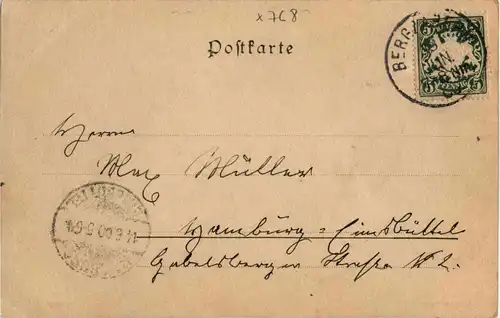 x7C8
Postkarte
BERG
JUN.
5 PFENNIG 5
Herrn
Max Müller
Hamburg=Eimsbüttel
Gabelsberger Straße No 2.
14.6.00.5-6N